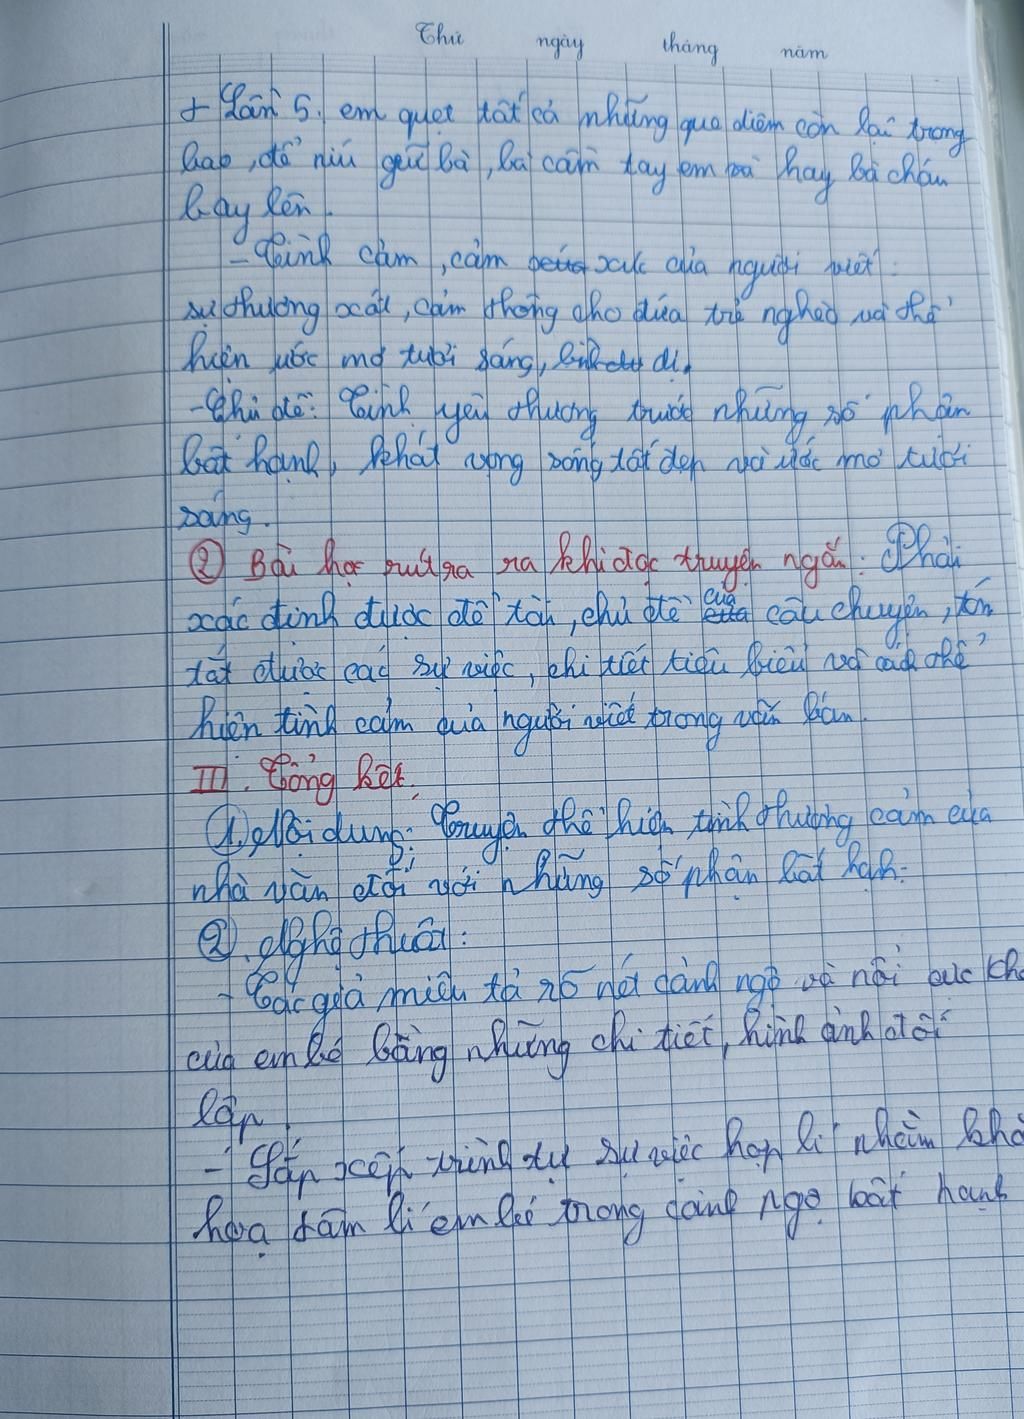 Thứ ngày tháng năm
+ Lần 5. em quẹt tất cả những que diêm còn lại trong
bao, để níu giữ bà, bà cầm tay em rồi hay bà cháu
bay lên.
- Tình cảm, cảm xúc của người viết:
sự thương xót, cảm thông cho đứa trẻ nghèo và thể
hiện ước mơ tươi sáng, bình dị.
- Chủ đề: Tình yêu thương trước những số phận
bất hạnh, khát vọng sống tốt đẹp và ước mơ tươi
sáng.
② Bài học rút ra ra khi đọc truyện ngắn: Phải
xác định được đề tài, chủ đề của câu chuyện, tóm
tắt được các sự việc, chi tiết tiêu biểu và cách thể
hiện tình cảm của người viết trong văn bản.
III. Tổng kết.
① Nội dung: Truyện thể hiện tình thương cảm của
nhà văn đối với những số phận bất hạnh.
②. Nghệ thuật:
- Tác giả miêu tả rõ nét cảnh ngộ và nỗi cực khổ
của em bé bằng những chi tiết, hình ảnh đối
lập.
- Sắp xếp trình tự sự việc hợp lí nhằm khắ
hoạ tâm lí em bé trong cảnh ngộ bất hạnh